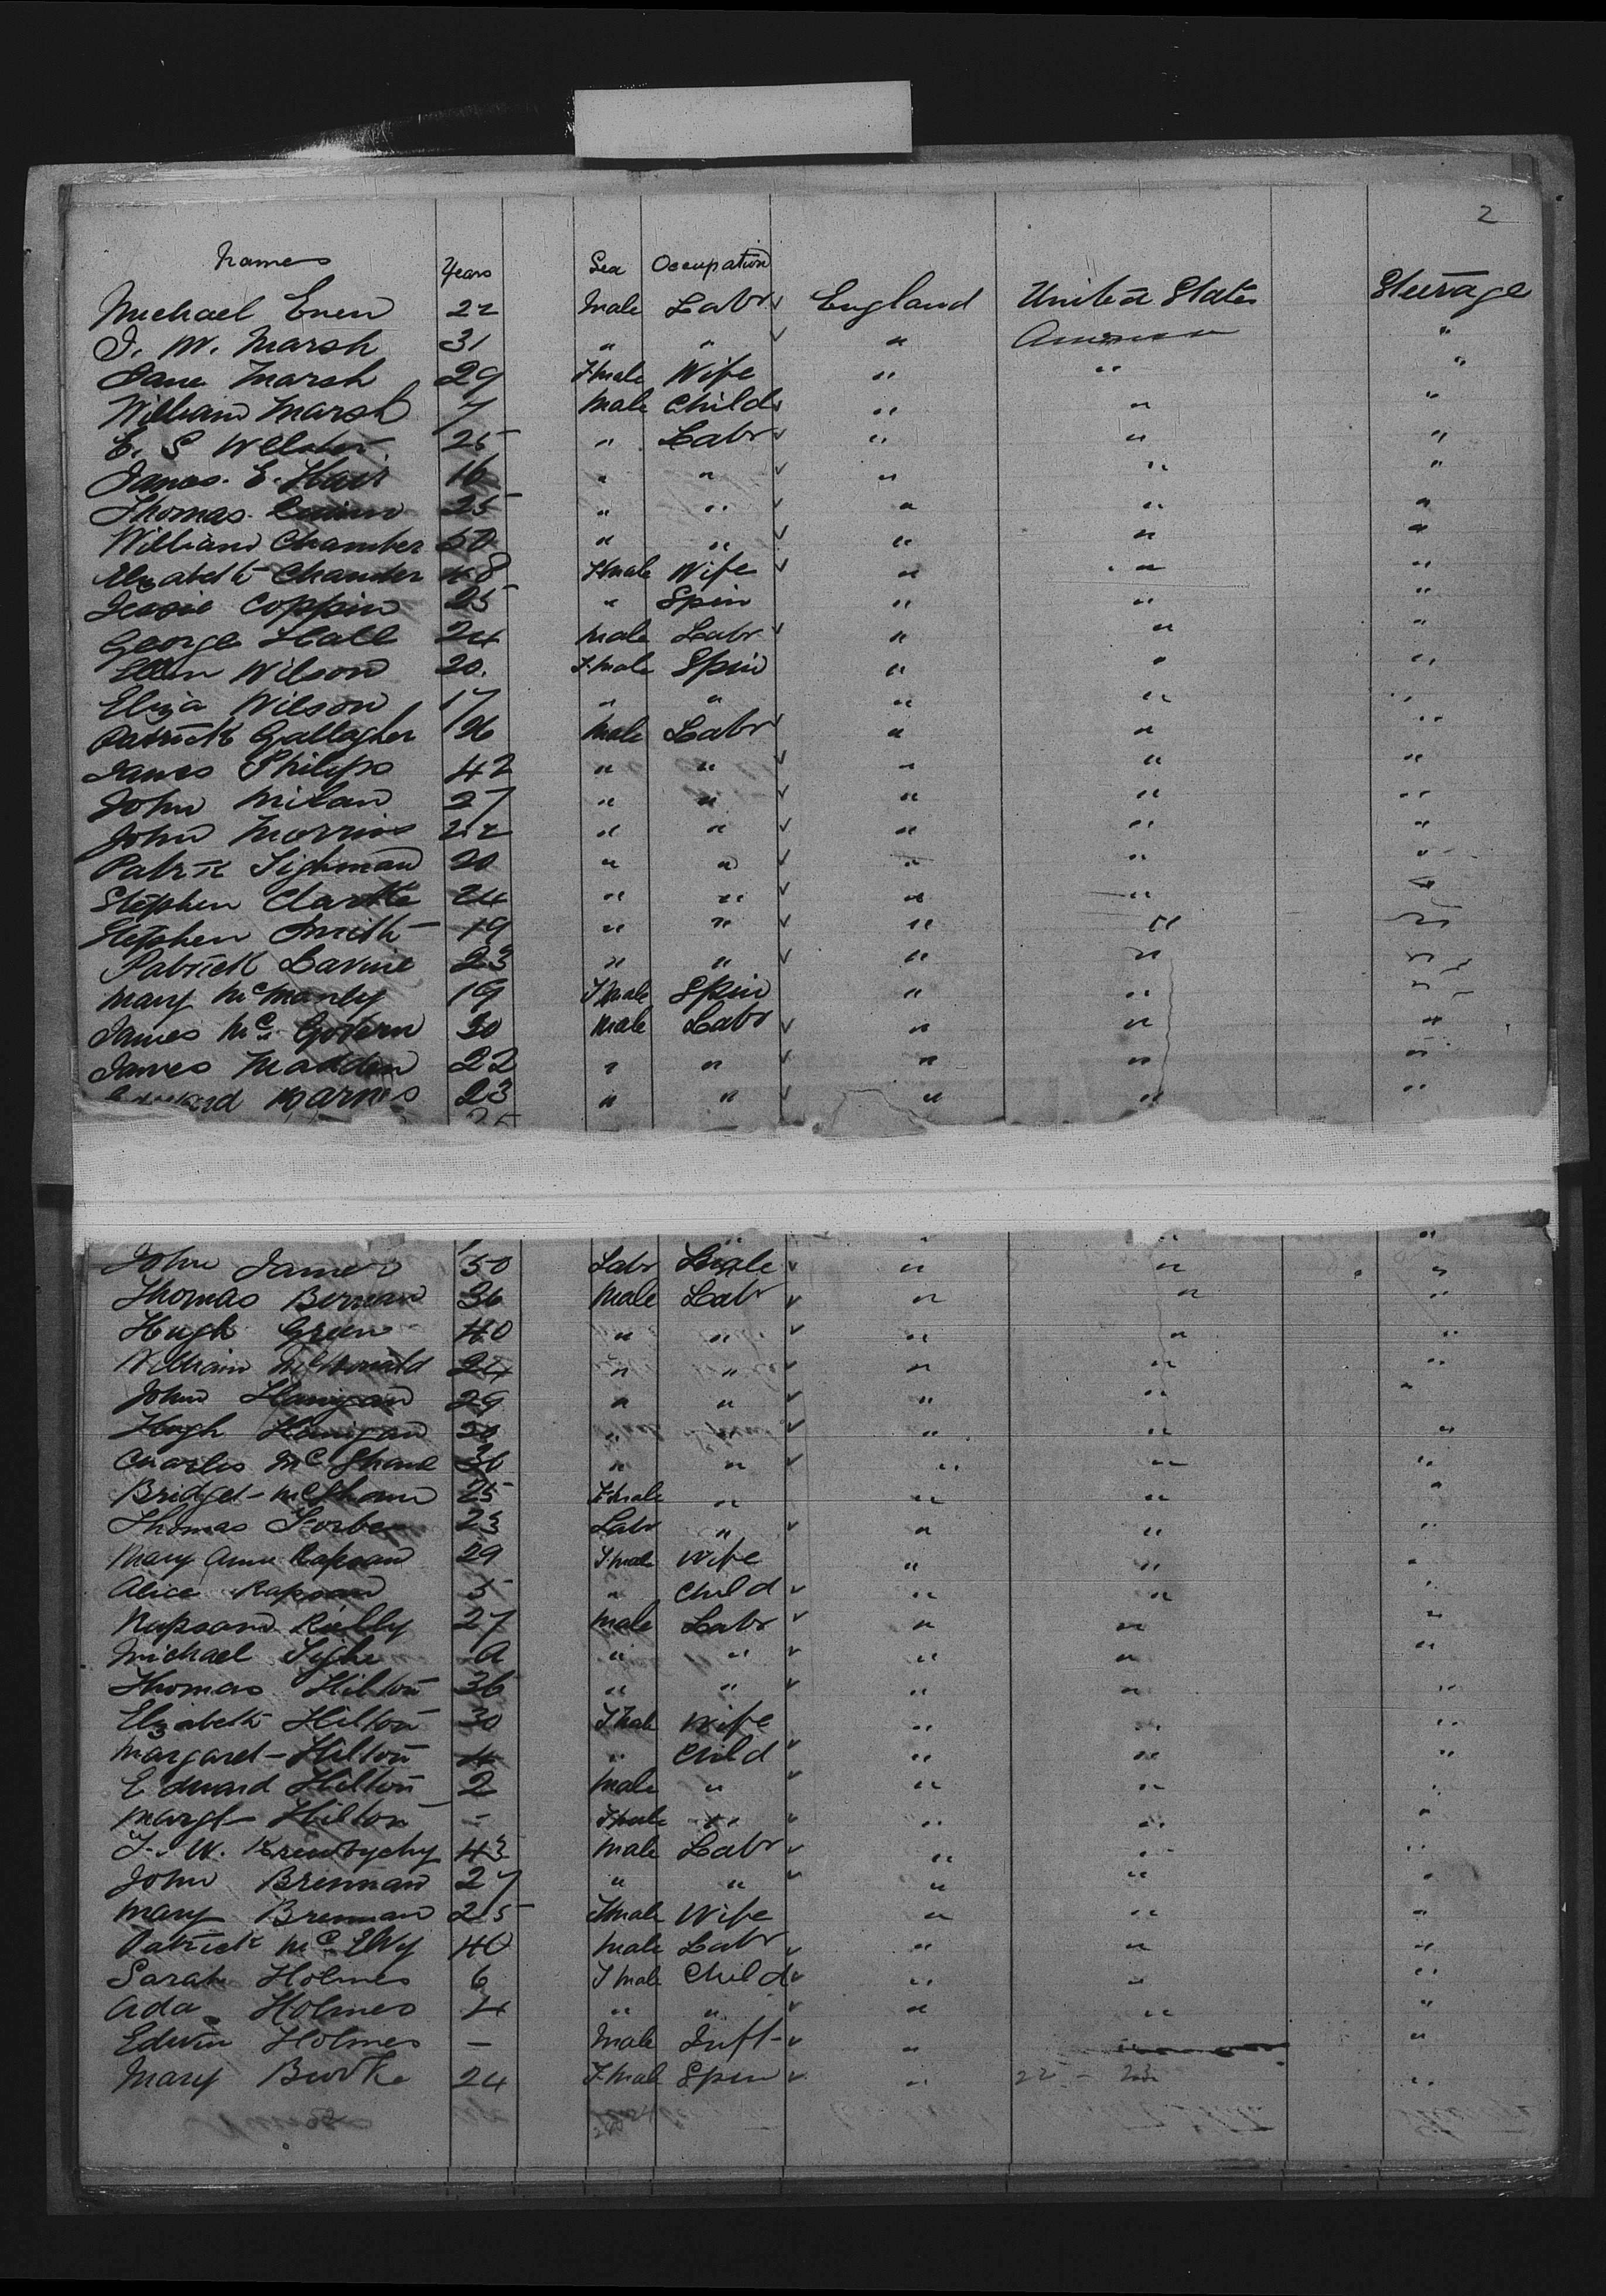 2
Names Years Sex Occupation
Michael Enen 22 Male Labr England United States Steerage
J. W. Marsh 31 " " " America "
Jane Marsh 29 Fmale Wife " " "
William Marsh 7 Male Child " " "
E. S 25 " Labr " " "
James. E. Hair 16 " " " " "
Thomas 25 " " " " "
William Chamber 50 " " " " "
Elizabeth Chamber 48 Fmale Wife " " "
Jessie Coppin 25 " Spin " " "
George Hall 24 Male Labr " " "
Ellen Wilson 20. Fmale Spin " " "
Eliza Wilson 17 " " " " "
Patrick Gallagher Male Labr " " "
James Philips 42 " " " " "
John Milan 27 " " " " "
John Morris 22 " " " " "
Patrk Tighman 20 " " " " "
Stephen Clarke 24 " " " " "
Stephen Smith 19 " " " " "
Patrick Lavine 23 " " " " "
Mary McManly 19 Fmale Spin " " "
James Mc Govern 30 Male Labr " " "
James Madden 22 " " " " "
Barnes 23 " " " " "
John James 50 Labr Male " " "
Thomas 36 Male Labr " " "
Hugh Green 40 " " " " "
William McDonald 24 " " " " "
John Hanigan 29 " " " " "
Hugh Hanigan 20 " " " " "
Charles McShane 36 " " " " "
Bridget McShane 25 Fmale " " " "
Thomas Forbes 23 Labr " " " "
Mary Ann Rapsan 29 Fmale Wife " " "
Alice Rapsan 5 " Child " " "
Rapsan Rielly 27 Male Labr " " "
Michael Tighe A " " " " "
Thomas Hilton 36 " " " " "
Elizabeth Hilton 30 Fmale Wife " " "
Margaret Hilton 4 " Child " " "
Edward Hilton 2 Male " " " "
Margt Hilton - Fmale " " " "
J. W. 43 Male Labr " " "
John Brennan 27 " " " " "
Mary Brennan 25 Fmale Wife " " "
Patrick McElvy 40 Male Labr " " "
Sarah Holmes 6 Fmale Child " " "
Ada Holmes 4 " " " " "
Edwin Holmes - Male Inft " "
Mary Burke 24 Fmale Spin " "